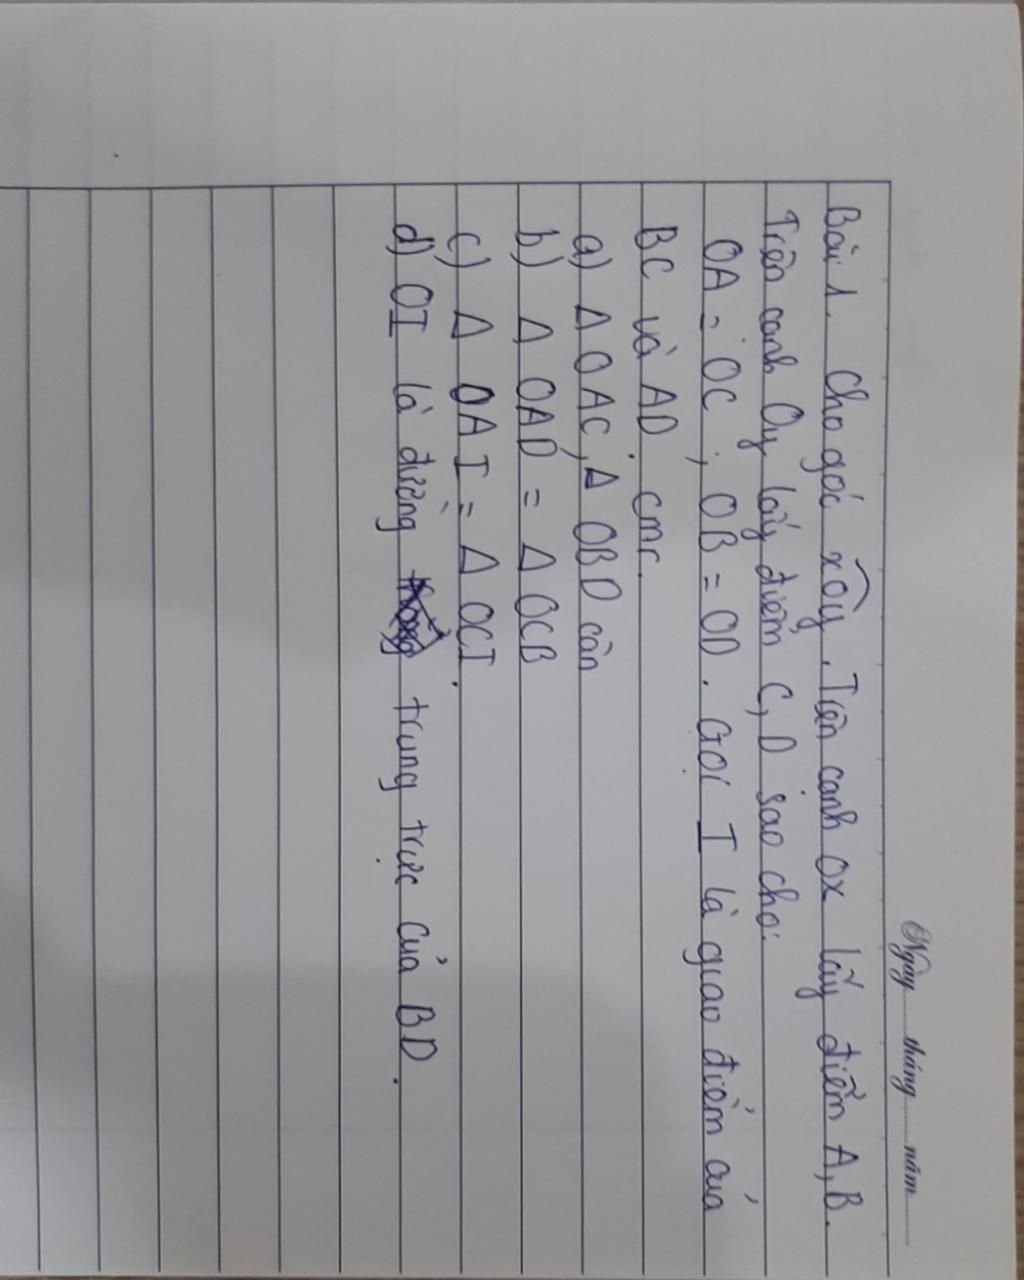 Ngày......tháng......năm......
Bài 1. Cho góc xOy. Trên cạnh Ox lấy điểm A, B.
Trên cạnh Oy lấy điểm C, D sao cho:
OA = OC ; OB = OD. Gọi I là giao điểm của
BC và AD. cmr.
a) Δ OAC, Δ OBD cân
b) Δ OAD = Δ OCB
c) Δ OAI = Δ OCI.
d) OI là đường trung trực của BD.